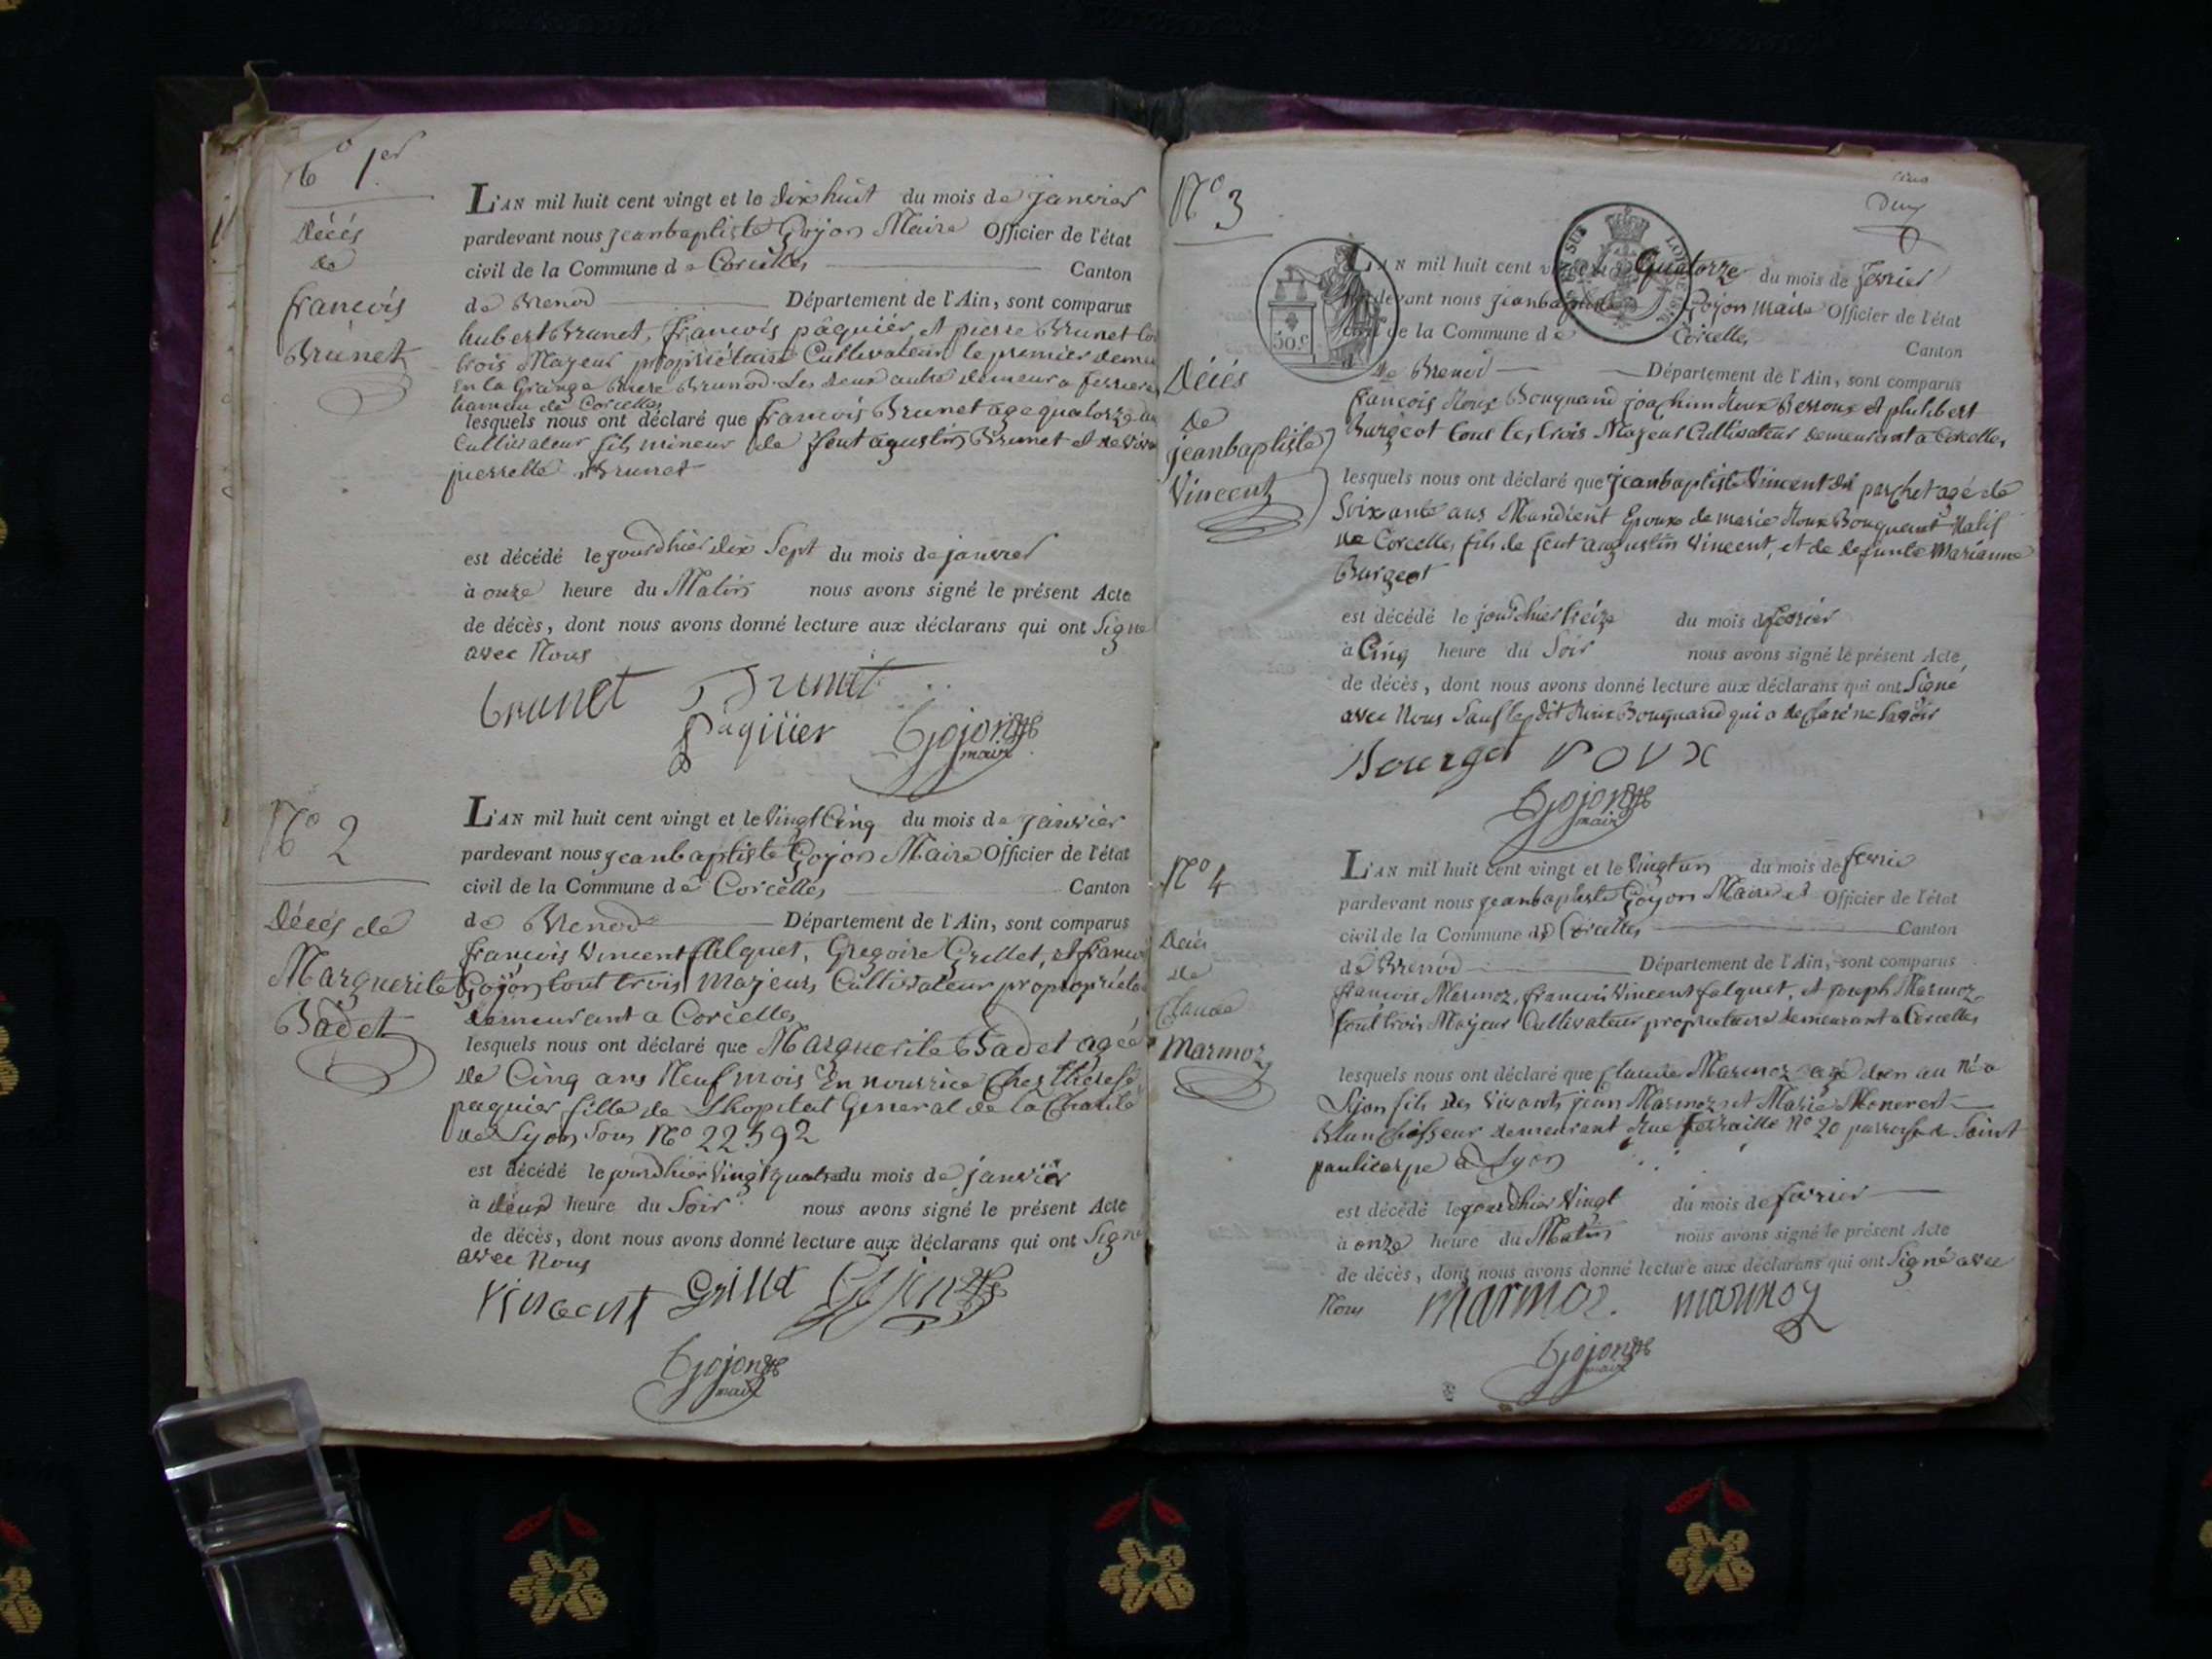 No 1er
Décés
de
francois
Brunet
L'AN mil huit cent vingt et le dix huit du mois de janvier
pardevant nous jeanbaptiste Gojon Maire Officier de l'état
civil de la Commune de Corcelles Canton
de Brenod Département de l'Ain, sont comparus
hubert Brunet, francois pâquiér et pierre Brunet
trois Majeur propriétaire Cultivateur le premier
En la Grange Brunod Les deux autre demeur a
hameau de Corcelles
lesquels nous ont déclaré que francois Brunet age quatorze
Cultivateur fils mineur de feut agustin Brunet et de
pierrette Brunet
est décédé le jourdhier dix Sept du mois de janvier
à onze heure du Matin nous avons signé le présent Acte
de décès, dont nous avons donné lecture aux déclarans qui ont Signe
avec Nous
brunet Brunet
Pâquier Gojon
maire
No 2
Décés de
Marguerite
Badet
L'AN mil huit cent vingt et le Vingt Cinq du mois de janvier
pardevant nous jeanbaptiste Gojon Maire Officier de l'état
civil de la Commune de Corcelles Canton
de Brenod Département de l'Ain, sont comparus
francois Vincent falquet, Gregoire Grillet, et
Gojon tout trois Majeurs Cultivateur
demeurant a Corcelles
lesquels nous ont déclaré que Marguerite Badet agée
de Cinq ans Neuf mois En nourrice Chez therese
paquier fille de Lhopital General de la Charité
de Lyon Sous No 22592
est décédé le jourdhier Vingt quatre du mois de janvier
à deux heure du Soir nous avons signé le présent Acte
de décès, dont nous avons donné lecture aux déclarans qui ont Signe
avec Nous
Vincent Grillet Gojon
Gojon
maire
No 3
Décés
de
jeanbaptiste
Vincent
50.c
L'AN mil huit cent vingt Quatorze du mois de fevrier
pardevant nous jeanbaptiste Gojon Maire Officier de l'état
civil de la Commune de Corcelles Canton
de Brenod Département de l'Ain, sont comparus
francois Roux Bouquand joachim Roux Berroux et philibert
Burgeot tout les trois Majeur Cultivateur demeurant a Corcelles
lesquels nous ont déclaré que jeanbaptiste Vincent agé de
Soixante ans Mandient Epoux de marie Roux Bouquant Natif
de Corcelles fils de feut augustin Vincent, et de defunte Marianne
Burgeot
est décédé le jourdhier treize du mois de fevrier
à Cinq heure du Soir nous avons signé le présent Acte
de décès, dont nous avons donné lecture aux déclarans qui ont Signé
avec Nous Sauf ledit Roux Bouquand qui a déclaré ne Savoir
Bourgot roux
Gojon
maire
No 4
Décés
de
Claude
Marmoz
L'AN mil huit cent vingt et le Vingt un du mois de fevrie
pardevant nous jeanbaptiste Gojon Maire et Officier de l'état
civil de la Commune de Corcelles Canton
de Brenod Département de l'Ain, sont comparus
francois Marmoz, francois Vincent falquet, et joseph Marmoz
tout trois Majeur Cultivateur proprietaire demeurant a Corcelles
lesquels nous ont déclaré que Claude Marmoz agé dun an Né a
Lyon fils des Vivants jean Marmoz et Marie Moneret
Blanchisseur demeurant Rue ferraille No 20 parroisse de Saint
paulicarpe a Lyon
est décédé le jourdhier Vingt du mois de fevrier
à onze heure du Matin nous avons signé le présent Acte
de décès, dont nous avons donné lecture aux déclarans qui ont Signé avec
Nous marmoz marmoz
Gojon
maire